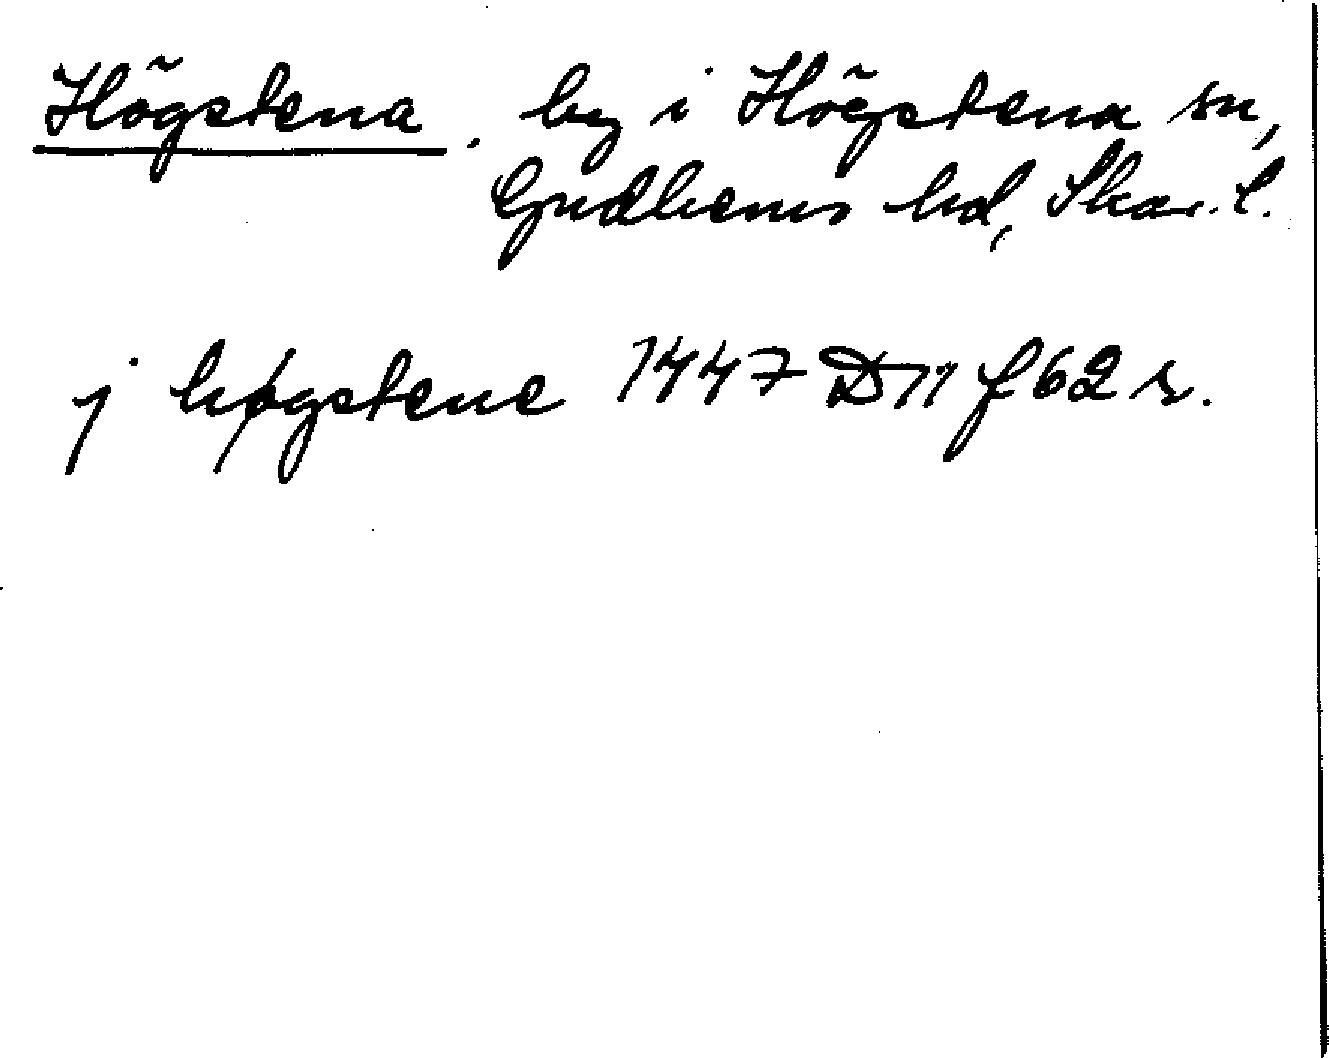 Högstena. by i Högstena sn,
Gudhems hd, Skar. l.
j høgstene 1447 D 11 f 62 r.